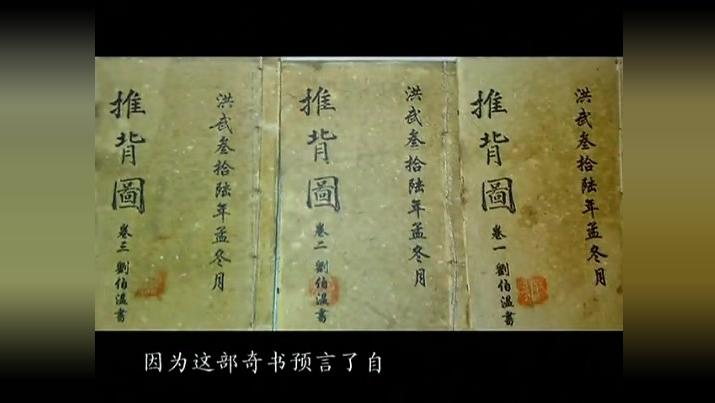 洪武叁拾陸年孟冬月
推背圖
卷一 劉伯温書
洪武叁拾陸年孟冬月
推背圖
卷二 劉伯温書
洪武叁拾陸年孟冬月
推背圖
卷三 劉伯温書
因为这部奇书预言了自